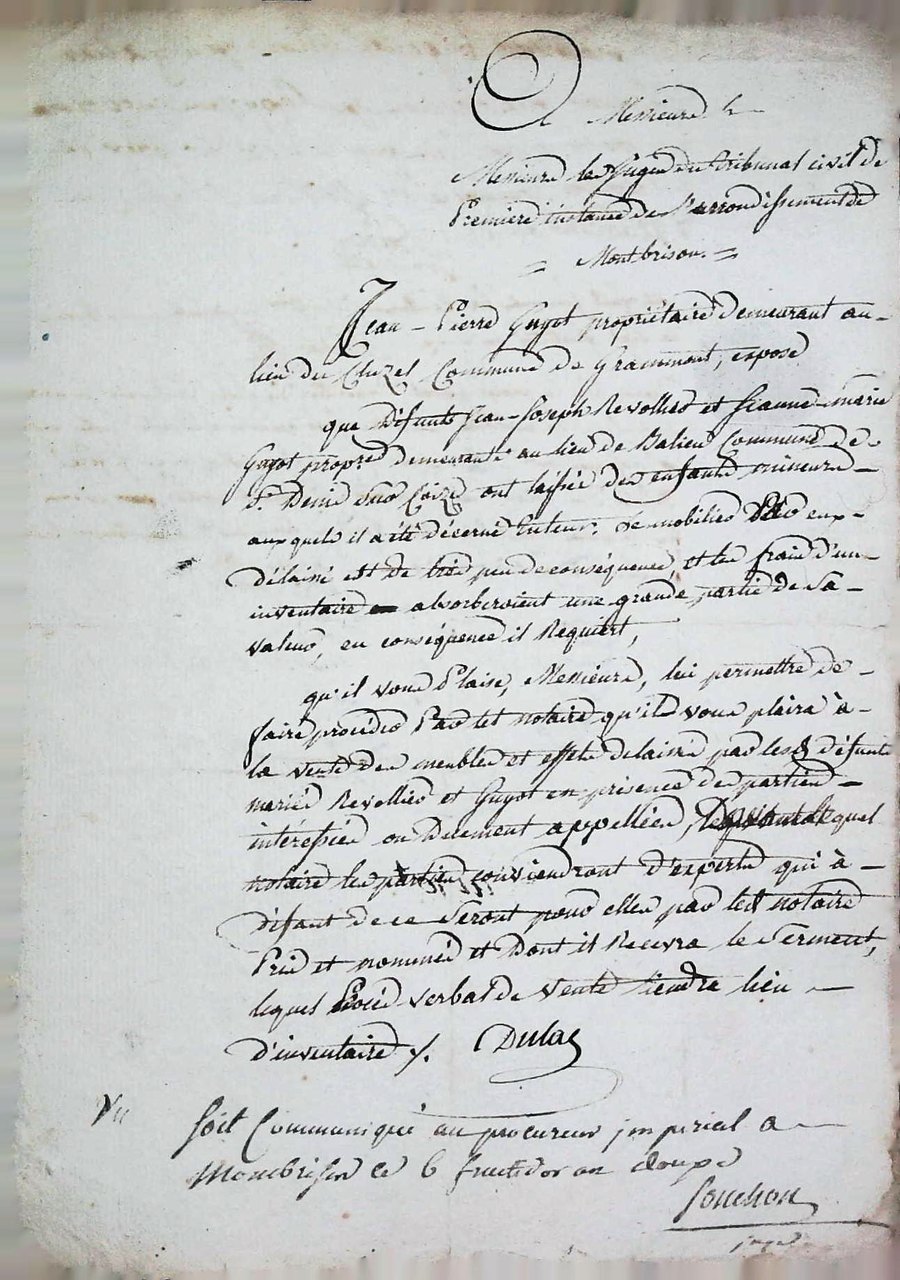 A Messieurs
Messieurs les Juges du tribunal civil de
Premiere instance de l'arrondissement de
= Montbrison. =
Jean-Pierre Guyot propriétaire demeurant au-
lieu du Cluzel Commune de Grammont, expose
que défunts Jean-Joseph Revollier et Jeanne-marie
Guyot propres demeurants au lieu de Balieu Commune de-
St. Denis sur Coize ont laissés des enfants mineurs-
auxquels il a été décerné tuteur. Le mobilier par eux-
délaissé est de très peu de conséquence et les frais d'un-
inventaire absorberoient une grande partie de sa-
valeur, en conséquence il Requiert,
qu'il vous Plaise, Messieurs, lui permettre de-
faire procéder Par tel notaire qu'il vous plaira à-
la vente des meubles et effets delaissés par lesds défunts
mariés Revollier et Guyot en présence des parties-
intéressées ou Duement appellées, lequel
notaire les parties conviendront d'experts qui à-
défaut de ce seront pour elles par ledt notaire
Pris et nommés et Dont il Recevra le serment,
lequel Procès verbal de vente tiendra lieu-
d'inventaire ./. Dulac
Vu
soit Communiqué au procureur imperial a
Montbrison le 6 fructidor an douze
Souchon
juge